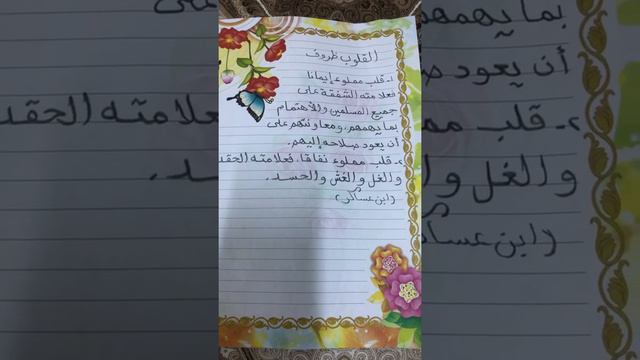 القلوب ظروف
١- قلب مملوء إيمانا
فعلامته الشفقة على
جميع المسلمين والاهتمام
بما يهمهم، ومعاونتهم على
أن يعود صلاحه إليهم.
٢- قلب مملوء نفاقا، فعلامته الحقد
والغل والغش والحسد.
(ابن عساكر)